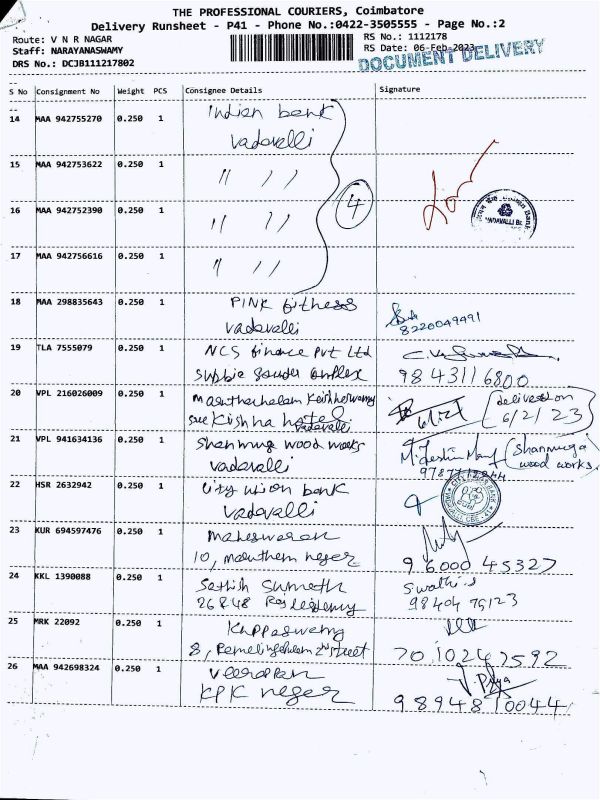 THE PROFESSIONAL COURIERS, Coimbatore
Delivery Runsheet - P41 - Phone No.:0422-3505555 - Page No.:2
Route: V N R NAGAR
RS No.: 1112178
Staff: NARAYANASWAMY
RS Date: 06-Feb-2023
DRS No.: DCJB111217802
DOCUMENT DELIVERY
S No Consignment No Weight PCS Consignee Details Signature
14 MAA 942755270 0.250 1 Indian bank
Vadavalli
15 MAA 942753622 0.250 1 " "
16 MAA 942752390 0.250 1 " "
4
17 MAA 942756616 0.250 1 " "
18 MAA 298835643 0.250 1 PINK fitness
Vadavalli
8220049491
19 TLA 7555079 0.250 1 NCS finance Pvt Ltd
9843116800
20 VPL 216026009 0.250 1
delivered on
6/2/23
Vadavalli
21 VPL 941634136 0.250 1 Shanmuga wood works
Vadavalli
(Shanmuga
wood works)
22 HSR 2632942 0.250 1 City union bank
Vadavalli
23 KUR 694597476 0.250 1 Maheswaran
10, maruthem neger
96000 45327
24 KKL 1390088 0.250 1 Sathish
Swathi.s
98404 75123
25 MRK 22092 0.250 1 Kuppaswamy
8, 2nd street
7010247592
26 MAA 942698324 0.250 1 Veerapan
KPK neger
9894810044